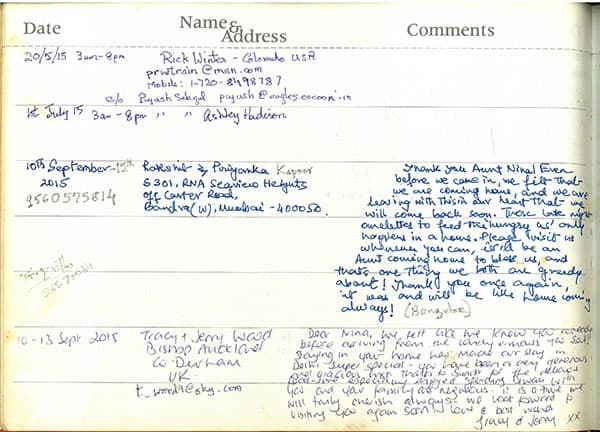 Date Name & Address Comments
20/5/15 3am-8pm Rick Winter - Colorado USA
prwtrain@msn.com
Mobile: 1-720-8498787
c/o Piyush Sehgal piyush@eaglescocoon.in
1st July 15 3am-8pm " " Ashley Hudson
10th September-12th Rakshit & Priyanka Kapoor
2015 S 301, RNA Seaview Heights
9560575814 off Carter Road,
Bandra (W), Mumbai - 400050.
Thank you Aunt Nina! Even
before we came in, we felt that
we are coming home, and we are
leaving with this in our heart that we
will come back soon. Those late night
omelettes to feed the hungry us' only
happens in a home. Please visit us
whenever you can, it'll be an
Aunt coming home to bless us, and
that's one thing we both are greedy
about! Thank you once again,
it was and will be like home coming
always! (Bangalore)
26570064
10-13 Sept 2015 Tracy & Jerry Wood
Bishop Auckland
Co Durham
UK
t_wood4@sky.com
Dear Nina, we felt like we knew you already
before arriving from the lovely emails you sent.
Staying in your home has made our stay in
Delhi super special - you have been a very generous
and gracious host thanks to for the
especially enjoyed spending with
you and your family & neighbours. it is a time we
will truly cherish always. we look forward to
visiting you again soon love & best wishes
Tracy & Jerry xx